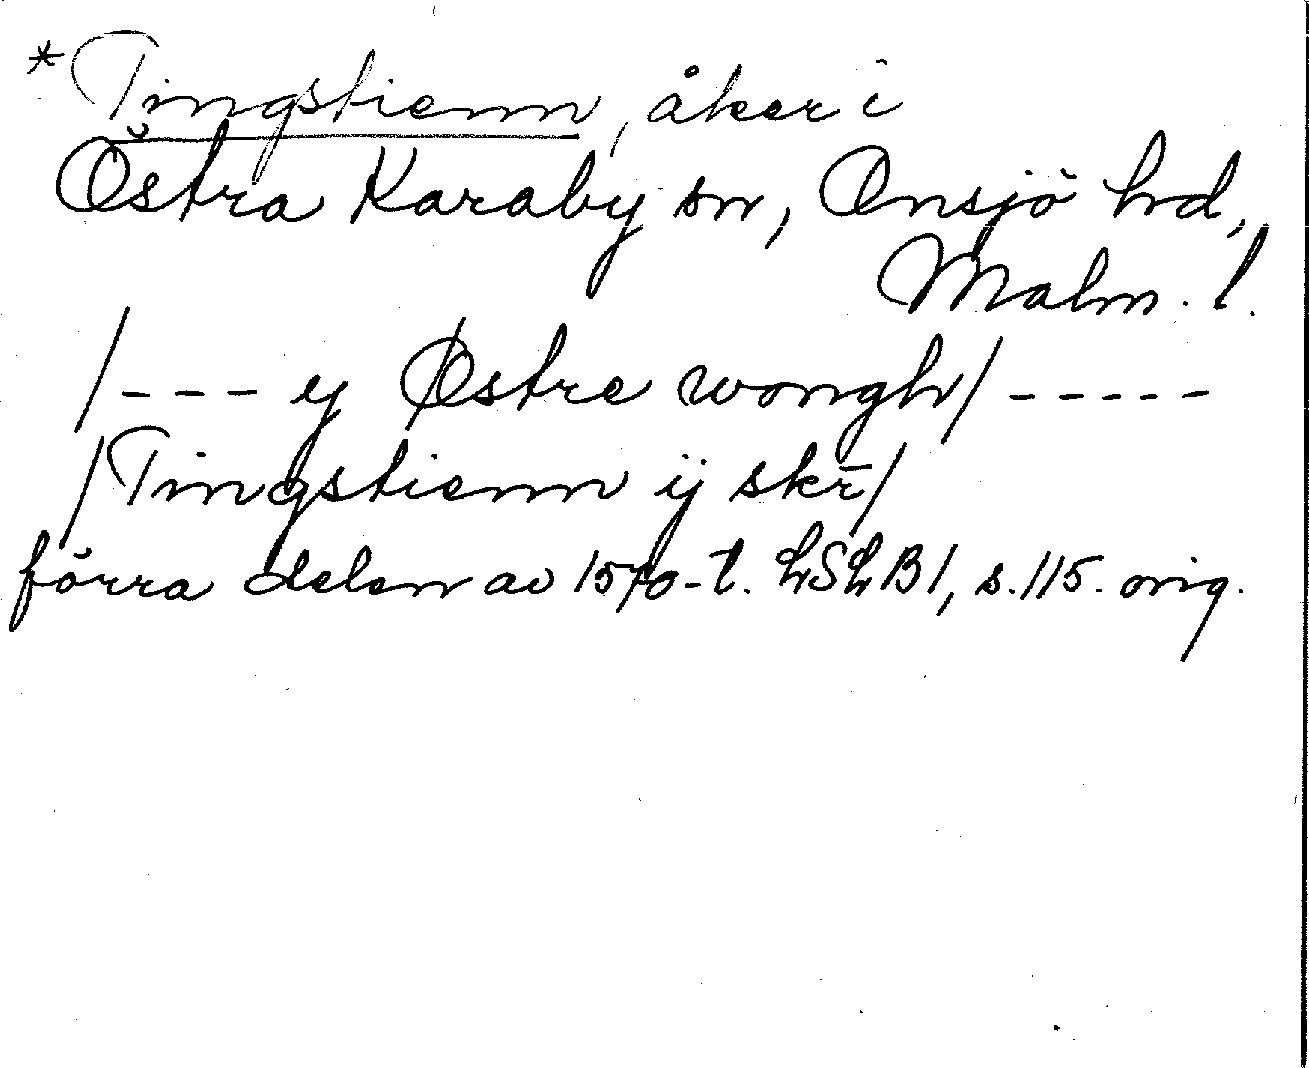 *Tingstienn, åker i
Östra Karaby sn, Onsjö hrd,
Malm. l.
/--- y Østre wongh/-----
/Tingstienn ij skr̄/
förra delen av 1570-t. LSLB1, s.115. orig.